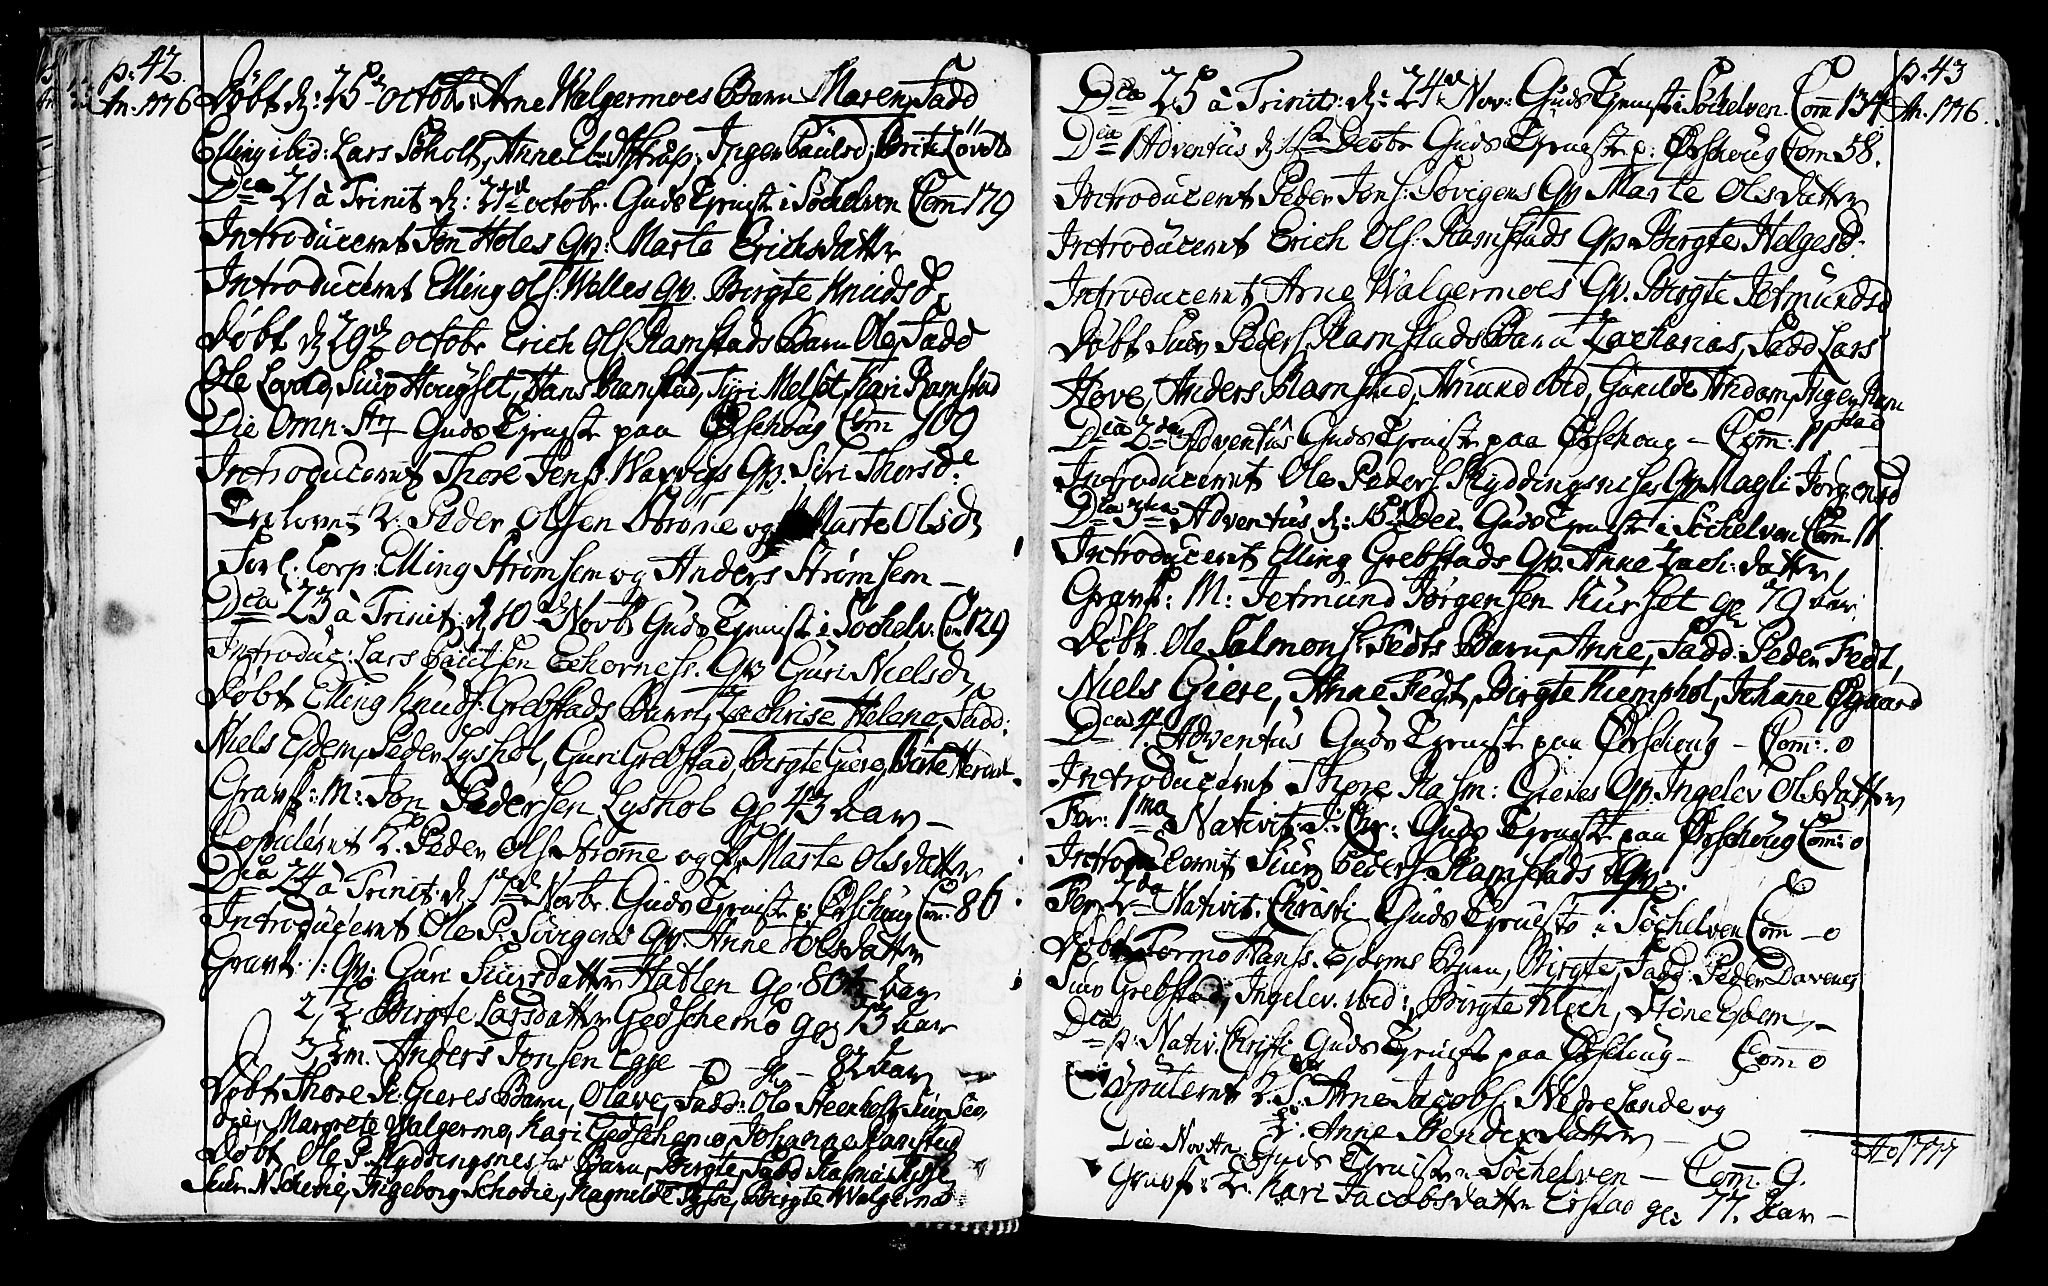 p: 42.
An. 1776
Døbt d: 25de octobr: Arne Walgermoes Barn Maren, Fadd
Elling ibid: Lars Søholt, Anne Ur Astrup, Inger Paulsd, Brite Løvold
Dca 21 à Trinit d: 27de octobr. Guds Tienist i Søchelven Com 179
Introducerrt Jon Holes Qv: Marte Erichsdattr
Introducerrt Elling Ols: Welles Qv. Birgte Knudsd
Døbt d 29de octobr Erich Ols Ramstads Barn Ole, Fadd
Ole Lovold, Siur Houg set, Hans Ramstad, Siri Melset, Kari Ramstad
Die Omn. St Guds Tieniste paa Ørschoug Com 109
Introducerrt Thore Jens. Waxvigs Qv. Siri Thorsd:
Trolovet 2: Peder Olsen Strøme og Marte Olsd
Forl. Corp: Elling Strømsem og Anders Strømsem –
Dca 23 à Trinit: d 10de Novb Guds Tienist i Søchelv. Com 129
Introduc: Lars Paulsen Echornes. Qv Guri Nielsd
Døbt Elling Knuds. Grebstads Barn, Zachrise Helene, Fadd:
Niels Ejdem, Peder Lyshol, Guri Grebstad, Birgte Giere, Birte
Gravf: M: Jon Pedersen Lyshol gl 43 aar –
Copulerrt 2. Peder Ols Strøme og Marte Olsdattr
Dca 24 à Trinit d. 17de Novbr. Guds Tieniste p: Ørschoug Com: 86
Introducerrt Ole P. Svigens Qv. Anne Olsdattr
Gravf: 1: Qv: Guri Siursdattr Hatlen gl: 80 aar
2, Birgte Larsdattr Gedschemo gl 73 aar
3, M. Anders Jonsen Egge – gl – 82 aar
Døbt Thore R: Gieres Barn, Olave, Fadd: Ole Steenholt, Siur Sco
ge, Margrete Walgermo, Kari Gedschemo, Johanne Ramstad
Døbt Ole P. Ryddingsneses Barn, Birgte, Fadd Rasmus
Siur N. Schodie, Ingeborg Schodie, Ragnilde, Birgte Walgermo
p: 43
An. 1776
Dca 25 à Trinit: d: 24de Nov: Guds Tienist i Søchelven. Com 134
Dca 1 Adventus d 1ste Decbr Guds Tieneste p: Ørschoug Com 58.
Introducerrt Peder Jons. Sovigens Qv Marte Olsdattr
Introducerrt Erich Ols: Ramstads Qv Birgte Helgesd:
Introducerrt Arne Walgermoes Qv. Birgte Jetmundsd
Døbt Siur Peders. Ramstads Barn Zacharias, Fadd Lars
Hove, Anders Ramstad, Amund ibid, Gunilde Andam, Inger Ram
stad
Dca 2den Adventus Guds Tieniste paa Ørschoug – Com: 11
Introducerrt Ole Peders. Ryddingsneses Qv Magli Jørgensd
Dca 3tia Adventus d: 15de Dec Guds Tieniste i Søchelven Com 11
Introducerrt Elling Grebstads Qv. Anne Zach: datter
Gravf: M: Jetmund Jørgensen Hurset gl 79 aar
Døbt Ole Salmons. Fedts Barn, Anne, Fadd: Peder Fedt,
Niels Giere, Anne Fedt, Birgte Kiemphol, Johane Øgaard
Dca 4. Adventus Guds Tieniste paa Ørschoug – Com: 0
Introducerrt Thore Rasm: Gieres Qv. Ingelev Olsdattr
Fer: 1ma Nativit: J: Chr: Guds Tieniste paa Ørschoug Com: 0
Introducerrt Siur Peders. Ramstads Qv:
Fer 2da Nativit: Christi Guds Tieniste i Søchelven Com – 0
Døbt Tormo Hanss. Ejdems Barn, Birgte, Fadd: Peder Davenes
Siur Grebstad, Ingelev ibid:, Birgte Klock, Stine Ejdem, –
Dca p: Nativ. Christi Guds Tienist paa Ørschoug – Com 0
Copulerrt 2. S. Arne Jacobs. Nedrelande og
P. Anne Bendixdattr –
Ao 1777
Die Nov An: Guds Tieniste i Søchelven – Com. 9.
Gravf: 2. Kari Jacobsdattr Erstad gl: 77. aar –